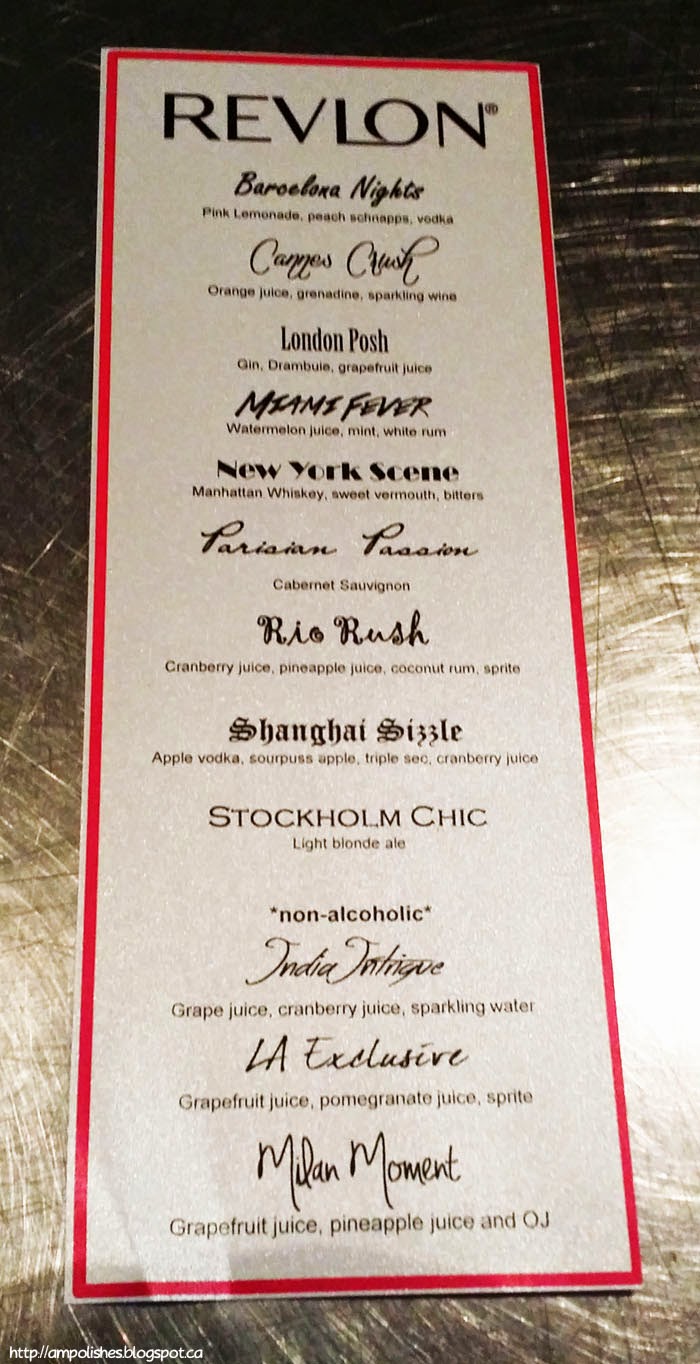 REVLON®
Barcelona Nights
Pink Lemonade, peach schnapps, vodka
Cannes Crush
Orange juice, grenadine, sparkling wine
London Posh
Gin, Drambuie, grapefruit juice
MIAMI FEVER
Watermelon juice, mint, white rum
New York Scene
Manhattan Whiskey, sweet vermouth, bitters
Parisian Passion
Cabernet Sauvignon
Rio Rush
Cranberry juice, pineapple juice, coconut rum, sprite
Shanghai Sizzle
Apple vodka, sourpuss apple, triple sec, cranberry juice
STOCKHOLM CHIC
Light blonde ale
*non-alcoholic*
India Intrigue
Grape juice, cranberry juice, sparkling water
LA Exclusive
Grapefruit juice, pomegranate juice, sprite
Milan Moment
Grapefruit juice, pineapple juice and OJ
http://ampolishes.blogspot.ca